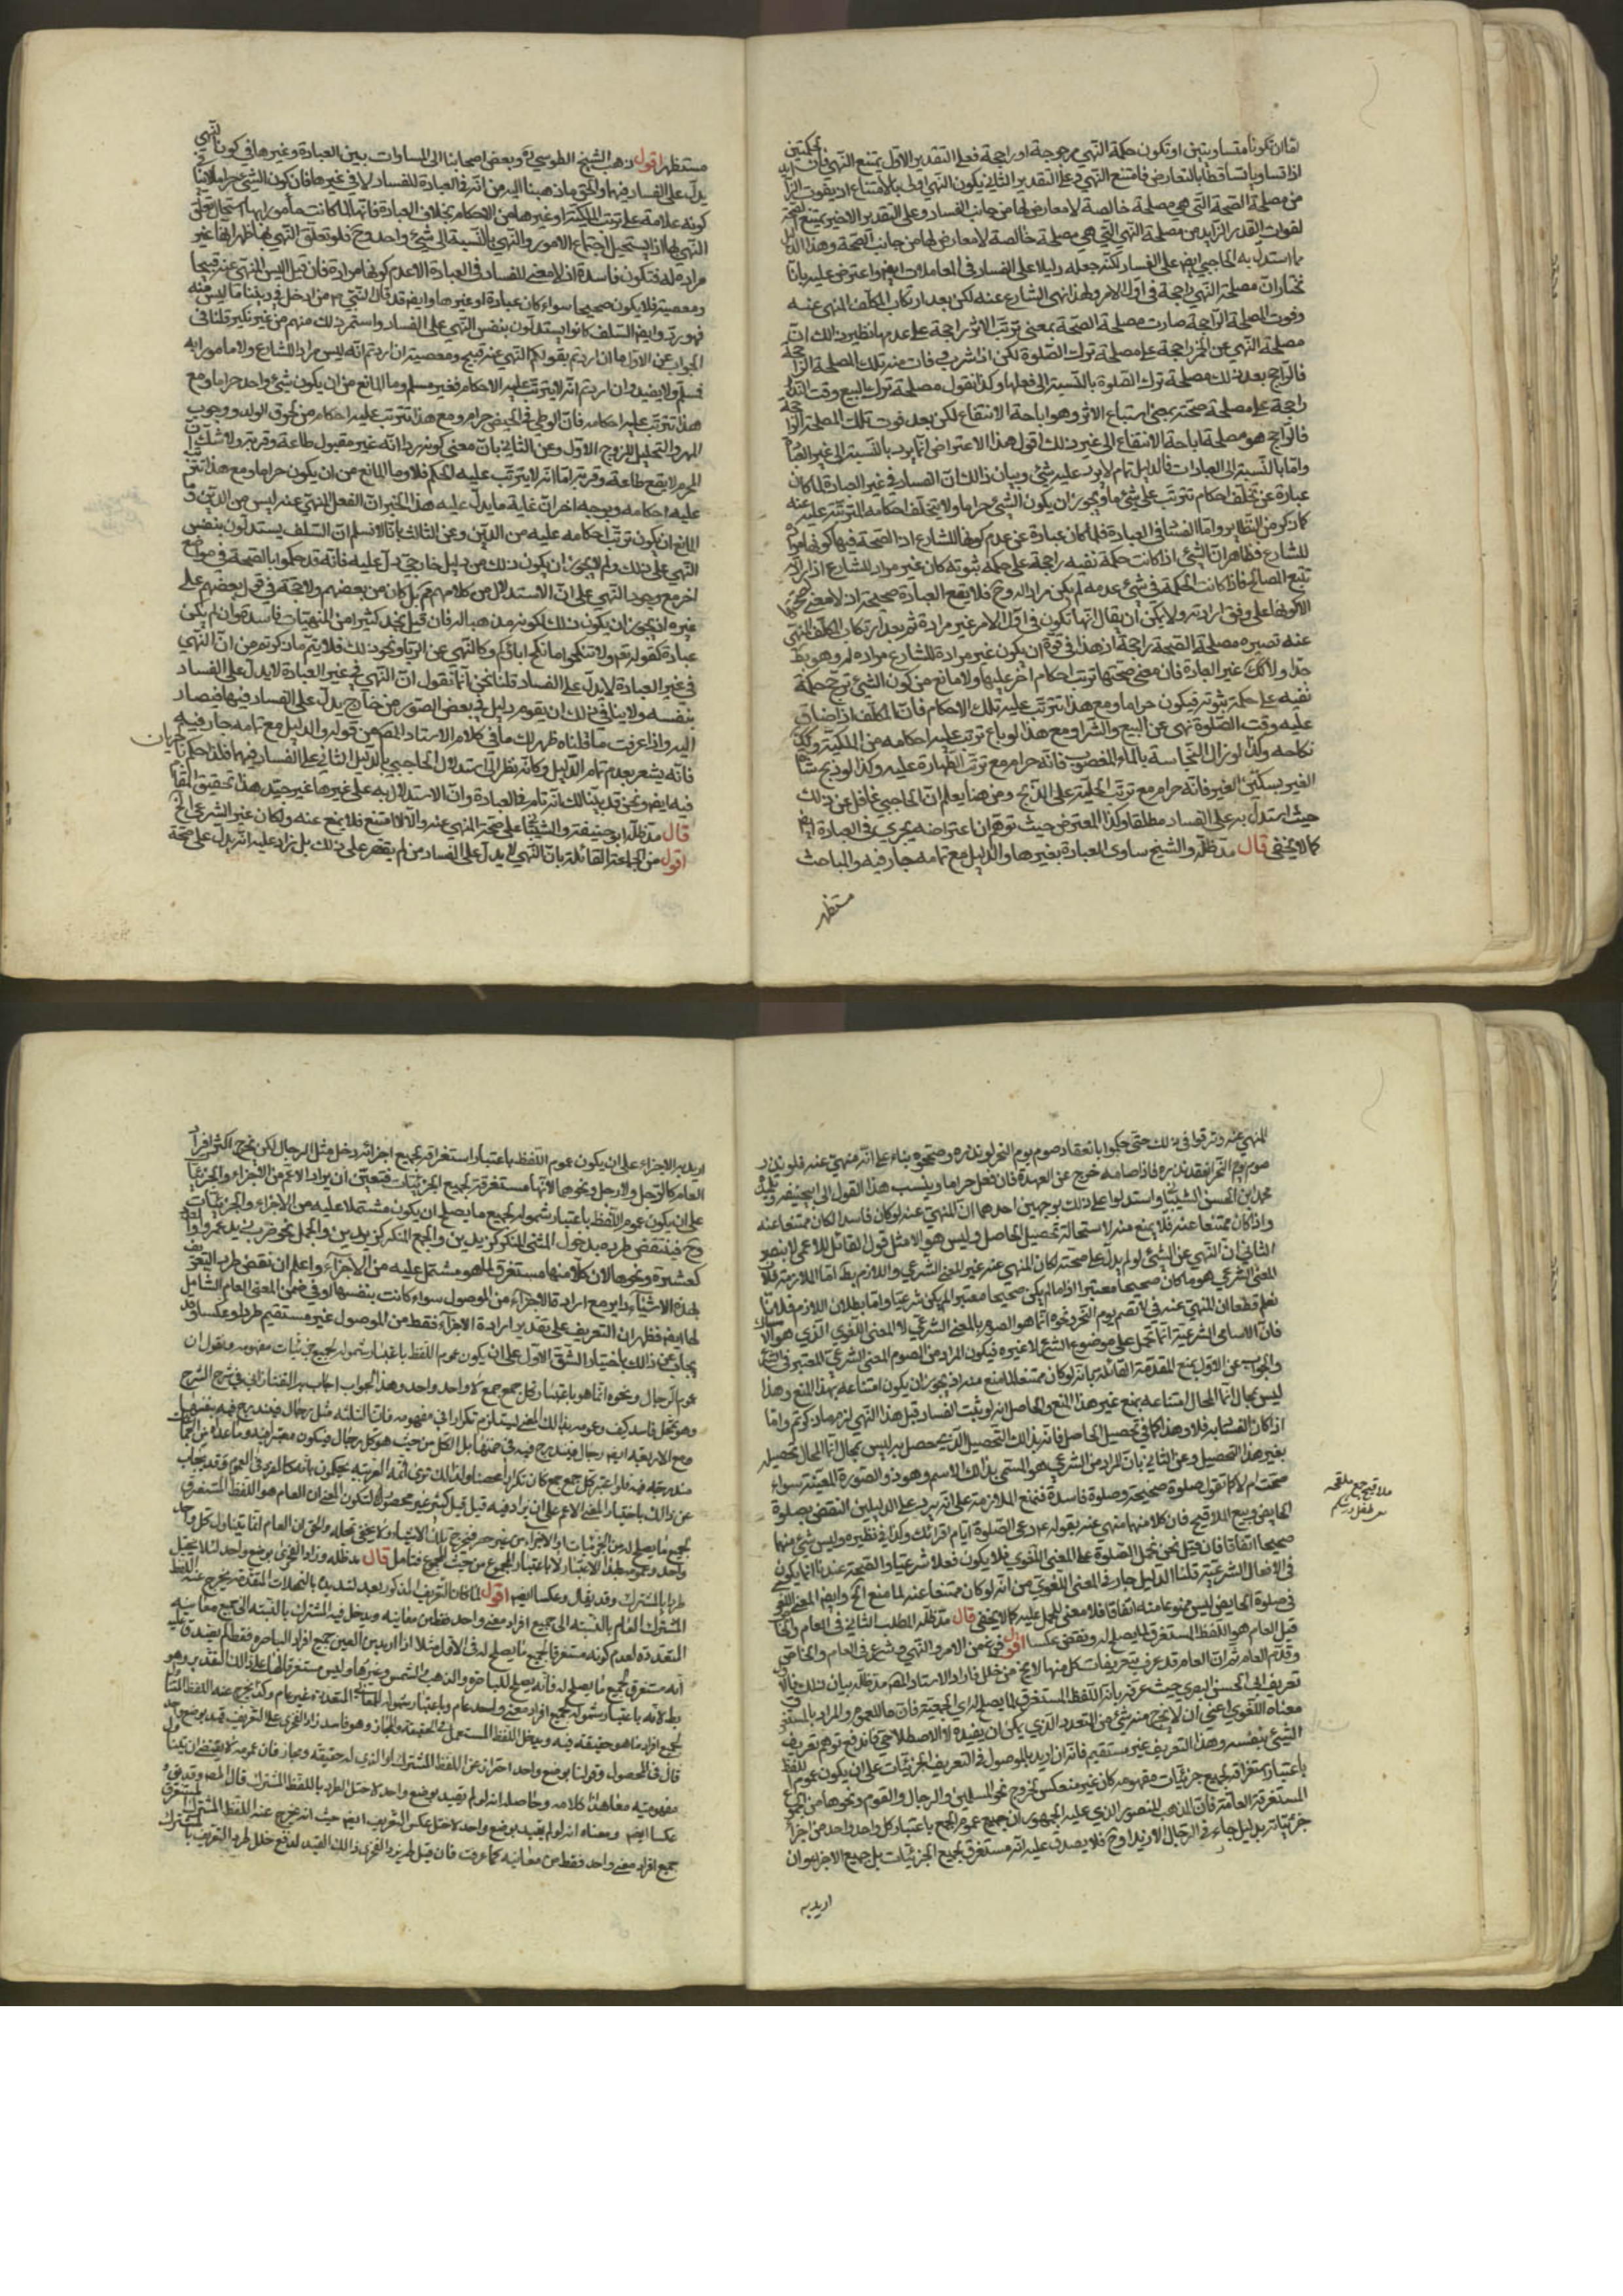 لها ان تكونا متساويتين او تكون حكمة النهي مرجوحة او راجحة فعلى التقدير الاول يمتنع النهي فان الحكمتين
اذا تساويا تساقطا بالتعارض فامتنع النهي وعلى التقدير الثاني يكون النهي اولى بالامتناع اذ يفوت الزايد
من مصلحة الصحة التي هي مصلحة خالصة لا معارض لها من جانب الفساد وعلى التقدير الاخير يمتنع الصحة
لفوات القدر الزايد من مصلحة النهي التي هي مصلحة خالصة لا معارض لها من جانب الصحة وهذا الدليل
مما استدل به الحاجبي ايضا على الفساد لكنه جعله دليلا على الفساد في المعاملات ايضا واعترض عليه بانا
نختار ان مصلحة النهي راجحة في اول الامر ولهذا نهى الشارع عنه لكن بعد ارتكاب المكلف المنهي عنه
وفوت المصلحة الراجحة صارت مصلحة الصحة بمعنى ترتب الاثر راجحة على عدمها نظير ذلك ان
مصلحة النهي عن الخمر راجحة على مصلحة ترك الصلوة لكن اذا شرب فات منه تلك المصلحة الراجحة
فالراجح بعد ذلك مصلحة ترك الصلوة بالنسبة الى فعلها وكذا نقول مصلحة ترك البيع وقت النداء
راجحة على مصلحة صحته بمعنى استتباع الاثر وهو اباحة الانتفاع لكن بعد فوت تلك المصلحة الراجحة
فالراجح هو مصلحة اباحة الانتفاع الى غير ذلك اقول هذا الاعتراض انما يرد بالنسبة الى غير العبادات
واما بالنسبة الى العبادات فالدليل تام لا يرد عليه شيء وبيان ذلك ان الفساد في غير العبادة لما كان
عبارة عن تخلف احكام تترتب على شيء ما ويجوز ان يكون الشيء حراما ولا يتخلف احكامه المترتبة عليه عنه
كما ذكر من النظاير واما الفساد في العبادة فلما كان عبارة عن عدم كونها للشارع اذ الصحة فيها كونها مرادة
للشارع فظاهر ان الشيء اذا كانت حكمة نفيه راجحة على حكمة ثبوته كان غير مراد للشارع اذ ارادته
تتبع المصالح فاذا كانت الحكمة في شيء عدمه لم يكن مراد الوجود فلا يقع العبادة صحيحة اذ لا معنى لصحتها
الا كونها على وفق ارادته ولا يمكن ان يقال انها تكون في اول الامر غير مرادة ثم بعد ارتكاب المكلف المنهي
عنه تصيره مصلحة الصحة راجحة اذ هذا في قوة ان يكون غير مرادة للشارع مراده له وهو بط
جدا ولا كك غير العبادة فان معنى صحتها ترتب احكام اخر عليها ولا مانع من كون الشيء ترجح حكمة
نفيه على حكمة ثبوته فيكون حراما ومع هذا تترتب عليه تلك الاحكام فان المكلف اذا ضاق
عليه وقت الصلوة نهى عن البيع والشراء ومع هذا لو باع ترتب عليه احكامه من الملكية وكك
نكاحه وكذا لو زال النجاسة بالماء المغصوب فانه حرام مع ترتب الطهارة عليه وكذا لو ذبح شاة
الغير بسكين الغير فانه حرام مع ترتب الحلية على الذبح ومن هنا يعلم ان الحاجبي غافل عن ذلك
حيث استدل به على الفساد مطلقا وكذا المعترض حيث توهم ان اعتراضه يجري في العبادة ايضا
كما لا يخفى قال مد ظله والشيخ ساوى العبادة بغيرها والدليل مع تمامه جار فيه والمباحث
مستظهر
مستظهر اقول ذهب الشيخ الطوسي ره وبعض اصحابنا الى المساوات بين العبادة وغيرها في كون النهي
يدل على الفساد فيها والحق ما ذهبنا اليه من انه في العبادة للفساد لا في غيرها فان كون الشيء حراما لا ينافي
كونه علامة على ترتب الملكية او غيرها من الاحكام بخلاف العبادة فانها لما كانت مأمورا بها استحال تعلق
النهي بها اذ يستحيل اجتماع الامر والنهي بالنسبة الى شيء واحد وح فلو تعلق النهي بها ظهر انها غير
مرادة له فتكون فاسدة اذ لا معنى للفساد في العبادة الا عدم كونها مرادة فان قيل اليس المنهي عنه قبيحا
ومعصية فلا يكون صحيحا سواء كان عبادة او غيرها وايضا قد قال النبي ص من ادخل في ديننا ما ليس منه
فهو رد وايضا السلف كانوا يستدلون بنفس النهي على الفساد واستمر ذلك منهم من غير نكير قلنا في
الجواب عن الاول ما ان اردتم بقولكم المنهي عنه قبيح ومعصية ان اردتم انه ليس مراد للشارع ولا مامور به
فسلم ولا يفيد وان اردتم انه لا يترتب عليه الاحكام فغير مسلم وما المانع من ان يكون شيء واحد حراما ومع
هذا تترتب عليه احكامه فان الوطي في الحيض حرام ومع هذا تترتب عليه احكام من لحوق الولد ووجوب
المهر والتحليل للزوج الاول وعن الثاني بان معنى كونه ردا انه غير مقبول طاعة وقربة ولا شك ان
المحرم لا يقع طاعة وقربة اما انه لا يترتب عليه الحكم فلا وما المانع من ان يكون حراما ومع هذا تترتب
عليه احكامه وبوجه اخر ان غاية ما يدل عليه هذا الخبر ان الفعل المنهي عنه ليس من الدين وما
المانع ان يكون ترتب احكامه عليه من الدين وعن الثالث بانا لا نسلم ان السلف يستدلون بنفس
النهي على ذلك ولم لا يجوز ان يكون ذلك من دليل خارجي دل عليه فانه قد حكموا بالصحة في مواضع
اخر مع وجود النهي على ان الاستدلال من كلامهم بل كان من بعضهم ولا حجة في قول بعضهم على
غيره اذ يجوز ان يكون ذلك لكونه مذهبا له فان قيل نجد كثيرا من المنهيات فاسدة وان لم يكن
عبادة كقوله تعم ولا تنكحوا ما نكح اباؤكم وكالنهي عن الربا ونحو ذلك فلا يتم ما ذكرتم من ان النهي
في غير العبادة لا يدل على الفساد قلنا نحن انما نقول ان النهي في غير العبادة لا يدل على الفساد
بنفسه ولا ينافي ذلك ان يقوم دليل في بعض الصور من خارج يدل على الفساد فيها فيصار
اليه واذا عرفت ما قلناه ظهر لك ما في كلام الاستاد المص من قوله والدليل مع تمامه جار فيه
فانه يشعر بعدم تمام الدليل وكانه نظر الى استدلال الحاجبي بالدليل الثاني على الفساد فيهما فلذا حكم بجريان
فيه ايضا ونحن قد بينا لك انه تام في العبادة وان الاستدلال به على غيرها غير جيد هذا تحقيق المقام
قال مد ظله ابو حنيفة والشيباني على صحة المنهي عنه والا لامتنع فلا يمنع عنه ولكان غير الشرعي الخ
اقول من الجماعة القائلة بان النهي لا يدل على الفساد من لم يقتصر على ذلك بل زاد عليه انه يدل على صحة
المنهي عنه وترقوا في ذلك حتى حكموا بانعقاد صوم يوم النحر لو نذره وصحته بناء على انه منهي عنه فلو نذر
صوم يوم النحر انعقد نذره فاذا صامه خرج عن العهدة فان فعل حراما وينسب هذا القول الى ابيحنيفة وتلميذه
محمد ابن الحسن الشيباني واستدلوا على ذلك بوجهين احدهما ان المنهي عنه لو كان فاسدا لكان ممتنعا عنه
واذا كان ممتنعا عنه فلا يمنع منه لاستحالة تحصيل الحاصل وليس هو الا مثل قول القائل للاعمى لا تبصر
الثاني ان النهي عن الشيء لو لم يدل على صحته لكان المنهي عنه غير المعنى الشرعي واللازم بط اما الملازمة فلان
المعنى الشرعي هو ما كان صحيحا معتبرا اذ ما لم يكن صحيحا معتبرا لم يكن شرعيا واما بطلان اللازم فلانا
نعلم قطعا ان المنهي عنه في لا تصم يوم النحر ونحوه انما هو الصوم بالمعنى الشرعي لا المعنى اللغوي الذي هو الامساك
فان الاسامي الشرعية انما تحمل على موضوع الشرع لا غيره فيكون المراد من الصوم المعنى الشرعي المعتبر في الشرع
والجواب عن الاول بمنع المقدمة القائلة بانه لو كان ممتنعا لما منع منه اذ يجوز ان يكون امتناعه بهذا المنع وهذا
ليس بمحال انما المحال امتناعه بمنع غير هذا المنع والحاصل انه لو ثبت الفساد قبل هذا النهي لزم ما ذكرتم واما
اذا كان الفساد به فلا وهذا كما في تحصيل الحاصل فانه بذلك التحصيل الذي حصل به ليس بمحال انما المحال تحصيله
بغير هذا التحصيل وعن الثاني بان المراد من الشرعي هو المسمى بذلك الاسم وهو ذو الصورة المعينة سواء
صحت ام لا كما تقول صلوة صحيحة وصلوة فاسدة فنمنع الملازمة على انه يرد على الدليلين النقض بصلوة
الحايض وبيع الملاقيح فان كلا منهما منهي عنه بقوله ع دعي الصلوة ايام اقرائك وكذا في نظيره وليس شيء منهما
صحيحا اتفاقا فان قيل نحن نحمل الصلوة على المعنى اللغوي فلا يكون فعلا شرعيا والصحة عندنا انما يكون
في الافعال الشرعية قلنا الدليل جار في المعنى اللغوي من انه لو كان ممتنعا عنه لما منع الخ وايضا المعنى اللغوي
في صلوة الحايض ليس ممنوعا منه اتفاقا فلا معنى للحمل عليه كما لا يخفى قال مد ظله المطلب الثاني في العام والخاص
قيل العام هو اللفظ المستغرق لما يصلح له ونقض عكسا اقول فرغ من الامر والنهي وشرع في العام والخاص
وقدم العام ثم ان العام قد عرف بتعريفات كل منها لا يخ من خلل فاراد الاستاد المص مد ظله بيان ذلك فالاول
تعريف ابي الحسين البصري حيث عرفه بانه اللفظ المستغرق لما يصلح له
معناه اللغوي اعني ان لا يخرج منه شيء من المتعدد الذي يمكن ان يفيده لا الاصطلاحي فاندفع توهم تعريف
الشيء بنفسه وهذا التعريف غير مستقيم فانه ان اريد بالموصول في التعريف الجزئيات على ان يكون عموم اللفظ
باعتبار استغراقه لجميع جزئيات مفهومه كان غير منعكس لخروج نحو المسلمين والرجال والقوم ونحوها من الجموع
المستغرقة العامة فان المذهب المنصور الذي عليه الجمهور ان جميع عموم الجمع باعتبار كل واحد واحد من اجزاء
جزئياته بدليل جاءني الرجال الا زيدا وح فلا يصدق عليه انه مستغرق لجميع الجزئيات بل جميع الاجزاء وان
اريد به
ملاقيح جمع ملقحه
اريد به الاجزاء على ان يكون عموم اللفظ باعتبار استغراقه لجميع اجزائه دخل مثل الرجال لكن يخرج اكثر افراد
العام كالرجل ولا رجل ونحوها لانها مستغرقة لجميع الجزئيات فتعين ان يراد الاعم من الاجزاء والجزئيات
على ان يكون عموم اللفظ باعتبار شموله لجميع ما يصلح ان يكون مشتملا عليه من الاجزاء والجزئيات
وح فينتقض طرده بدخول المثنى المنكر كزيدين والجمع المنكر كزيدين والجمل نحو ضرب زيد عمروا
كعشرة ونحوها لان كلا منها مستغرق لما هو مشتمل عليه من الاجزاء واعلم ان نقض طرد التعريف
بهذه الاشياء داير مع ارادة الاجزاء من الموصول سواء كانت بنفسها او في ضمن المعنى العام الشامل
لها ايضا فظهر ان التعريف على تقدير ارادة الاجزاء فقط من الموصول غير مستقيم طردا وعكسا وقد
يجاب عن ذلك باختيار الشق الاول على ان يكون عموم اللفظ باعتبار شموله لجميع جزئيات مفهومه ونقول ان
عموم الرجال ونحوه انما هو باعتبار كل جمع جمع لا واحد واحد وهذا الجواب اجاب به التفتازاني في شرح الشرح
وهو تمحل فاسد كيف وعمومه بذلك المعنى يستلزم تكرارا في مفهومه فان الثلثة مثل رجال فيندرج فيه بنفسها
مع الاربعة ايضا رجال فيندرج فيه في ضمنها بل الكل من حيث هو كل رجال فيكون معتبرا فيه وما عداه من الجماعات
مندرجة فيه فلو اعتبر كل جمع جمع كان تكرارا محضا ولذلك ترى ائمة العربية يحكمون بانه كالمفرد في العموم وقد يجاب
عن ذلك باختيار المعنى الاعم على ان يراد فيه قيد غير محصور لكون المعنى ان العام هو اللفظ المستغرق
لجميع ما يصلح له من الجزئيات او الاجزاء من غير حصر فيخرج تلك الاشياء ولا يخفى تمحله والحق ان العام انما يتناول كل واحد
واحد وعمومه بهذا الاعتبار لا باعتبار المجموع من حيث المجموع فتامل قال مد ظله وزاد الفخري بوضع واحد لئلا يختل
طردا بالمشترك وقد يقال وعكسا ايضا اقول لما كان التعريف المذكور بعد تشديده بالتمحلات المتقدمة يخرج عنه اللفظ
المشترك العام بالنسبة الى جميع افراد معنى واحد فقط من معانيه ويدخل فيه المشترك بالنسبة الى جميع معانيه
المتعددة لعدم كونه مستغرقا لجميع ما يصلح له في الاول مثلا اذا اريد من العين جميع افراد الباصرة فقط لم يصدق عليه
انه مستغرق لجميع ما يصلح له فانه يصلح للباصرة والذهب والشمس وغيرها وليس مستغرقا لها على ذلك التقدير وهو
بط لانه باعتبار شموله لجميع افراد معنى واحد عام وباعتبار شموله لمعانيه المتعددة غير عام وكذا يخرج عنه اللفظ المتناول
لجميع افراد ما هو حقيقة فيه ويدخل اللفظ المستعمل في الحقيقة والمجاز وهو فاسد زاد الفخري على التعريف قيد بوضع واحد
قال في المحصول وقولنا بوضع واحد احتراز عن اللفظ المشترك او الذي له حقيقة ومجاز فان عمومه لا يقتضي ان يتناول
مفهوميه معا هذا كلامه وحاصله انه لو لم يقيد بوضع واحد لاختل الطرد باللفظ المشترك قال المص وقد يق و
عكسا ايضا ومعناه انه لو لم يقيد بوضع واحد لاختل عكس التعريف ايضا حيث انه يخرج عنه اللفظ المشترك المستغرق
جميع افراد معنى واحد فقط من معانيه كما عرفت فان قيل لم يزد الفخري ذلك القيد لدفع خلل طرد التعريف بالمشترك